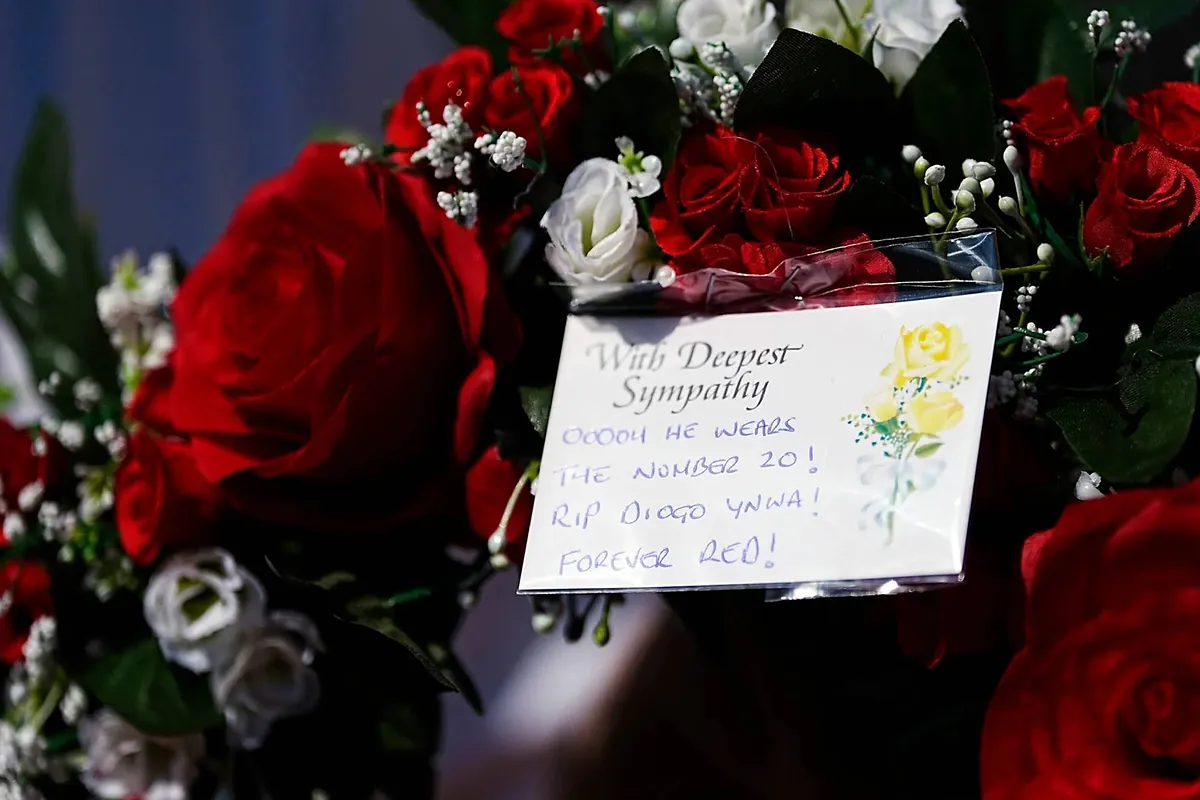 With Deepest
Sympathy
OOOOH HE WEARS
THE NUMBER 20!
RIP DIOGO YNWA!
FOREVER RED!